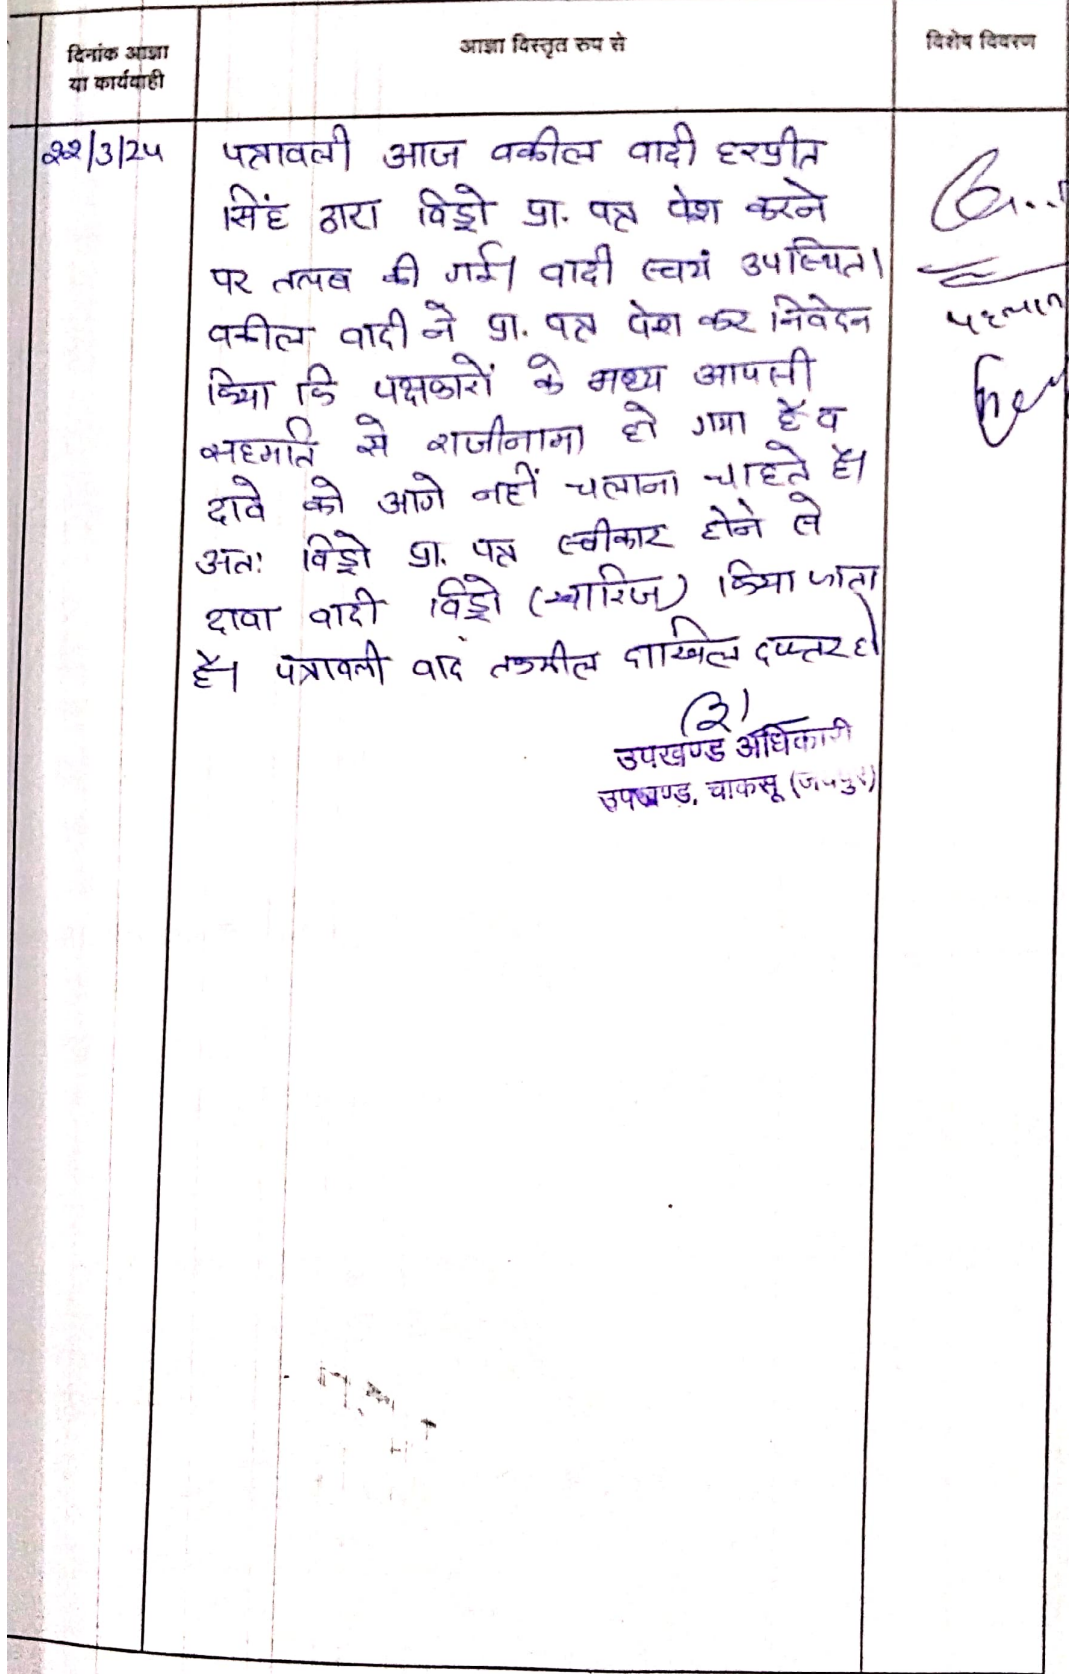 दिनांक आज्ञा
या कार्यवाही
आज्ञा विस्तृत रुप से
विशेष विवरण
22/3/24
पत्रावली आज वकील वादी हरप्रीत
सिंह द्वारा विड्रो प्रा. पत्र पेश करने
पर तलब की गई। वादी स्वयं उपस्थित।
वकील वादी ने प्रा. पत्र पेश कर निवेदन
किया कि पक्षकारों के मध्य आपसी
सहमति से राजीनामा हो गया है व
दावे को आगे नहीं चलाना चाहते है।
अतः विड्रो प्रा. पत्र स्वीकार होने से
दावा वादी विड्रो (खारिज) किया जाता
है। पत्रावली बाद तकमील दाखिल दफ्तर हो
उपखण्ड अधिकारी
उपखण्ड, चाकसू (जयपुर)